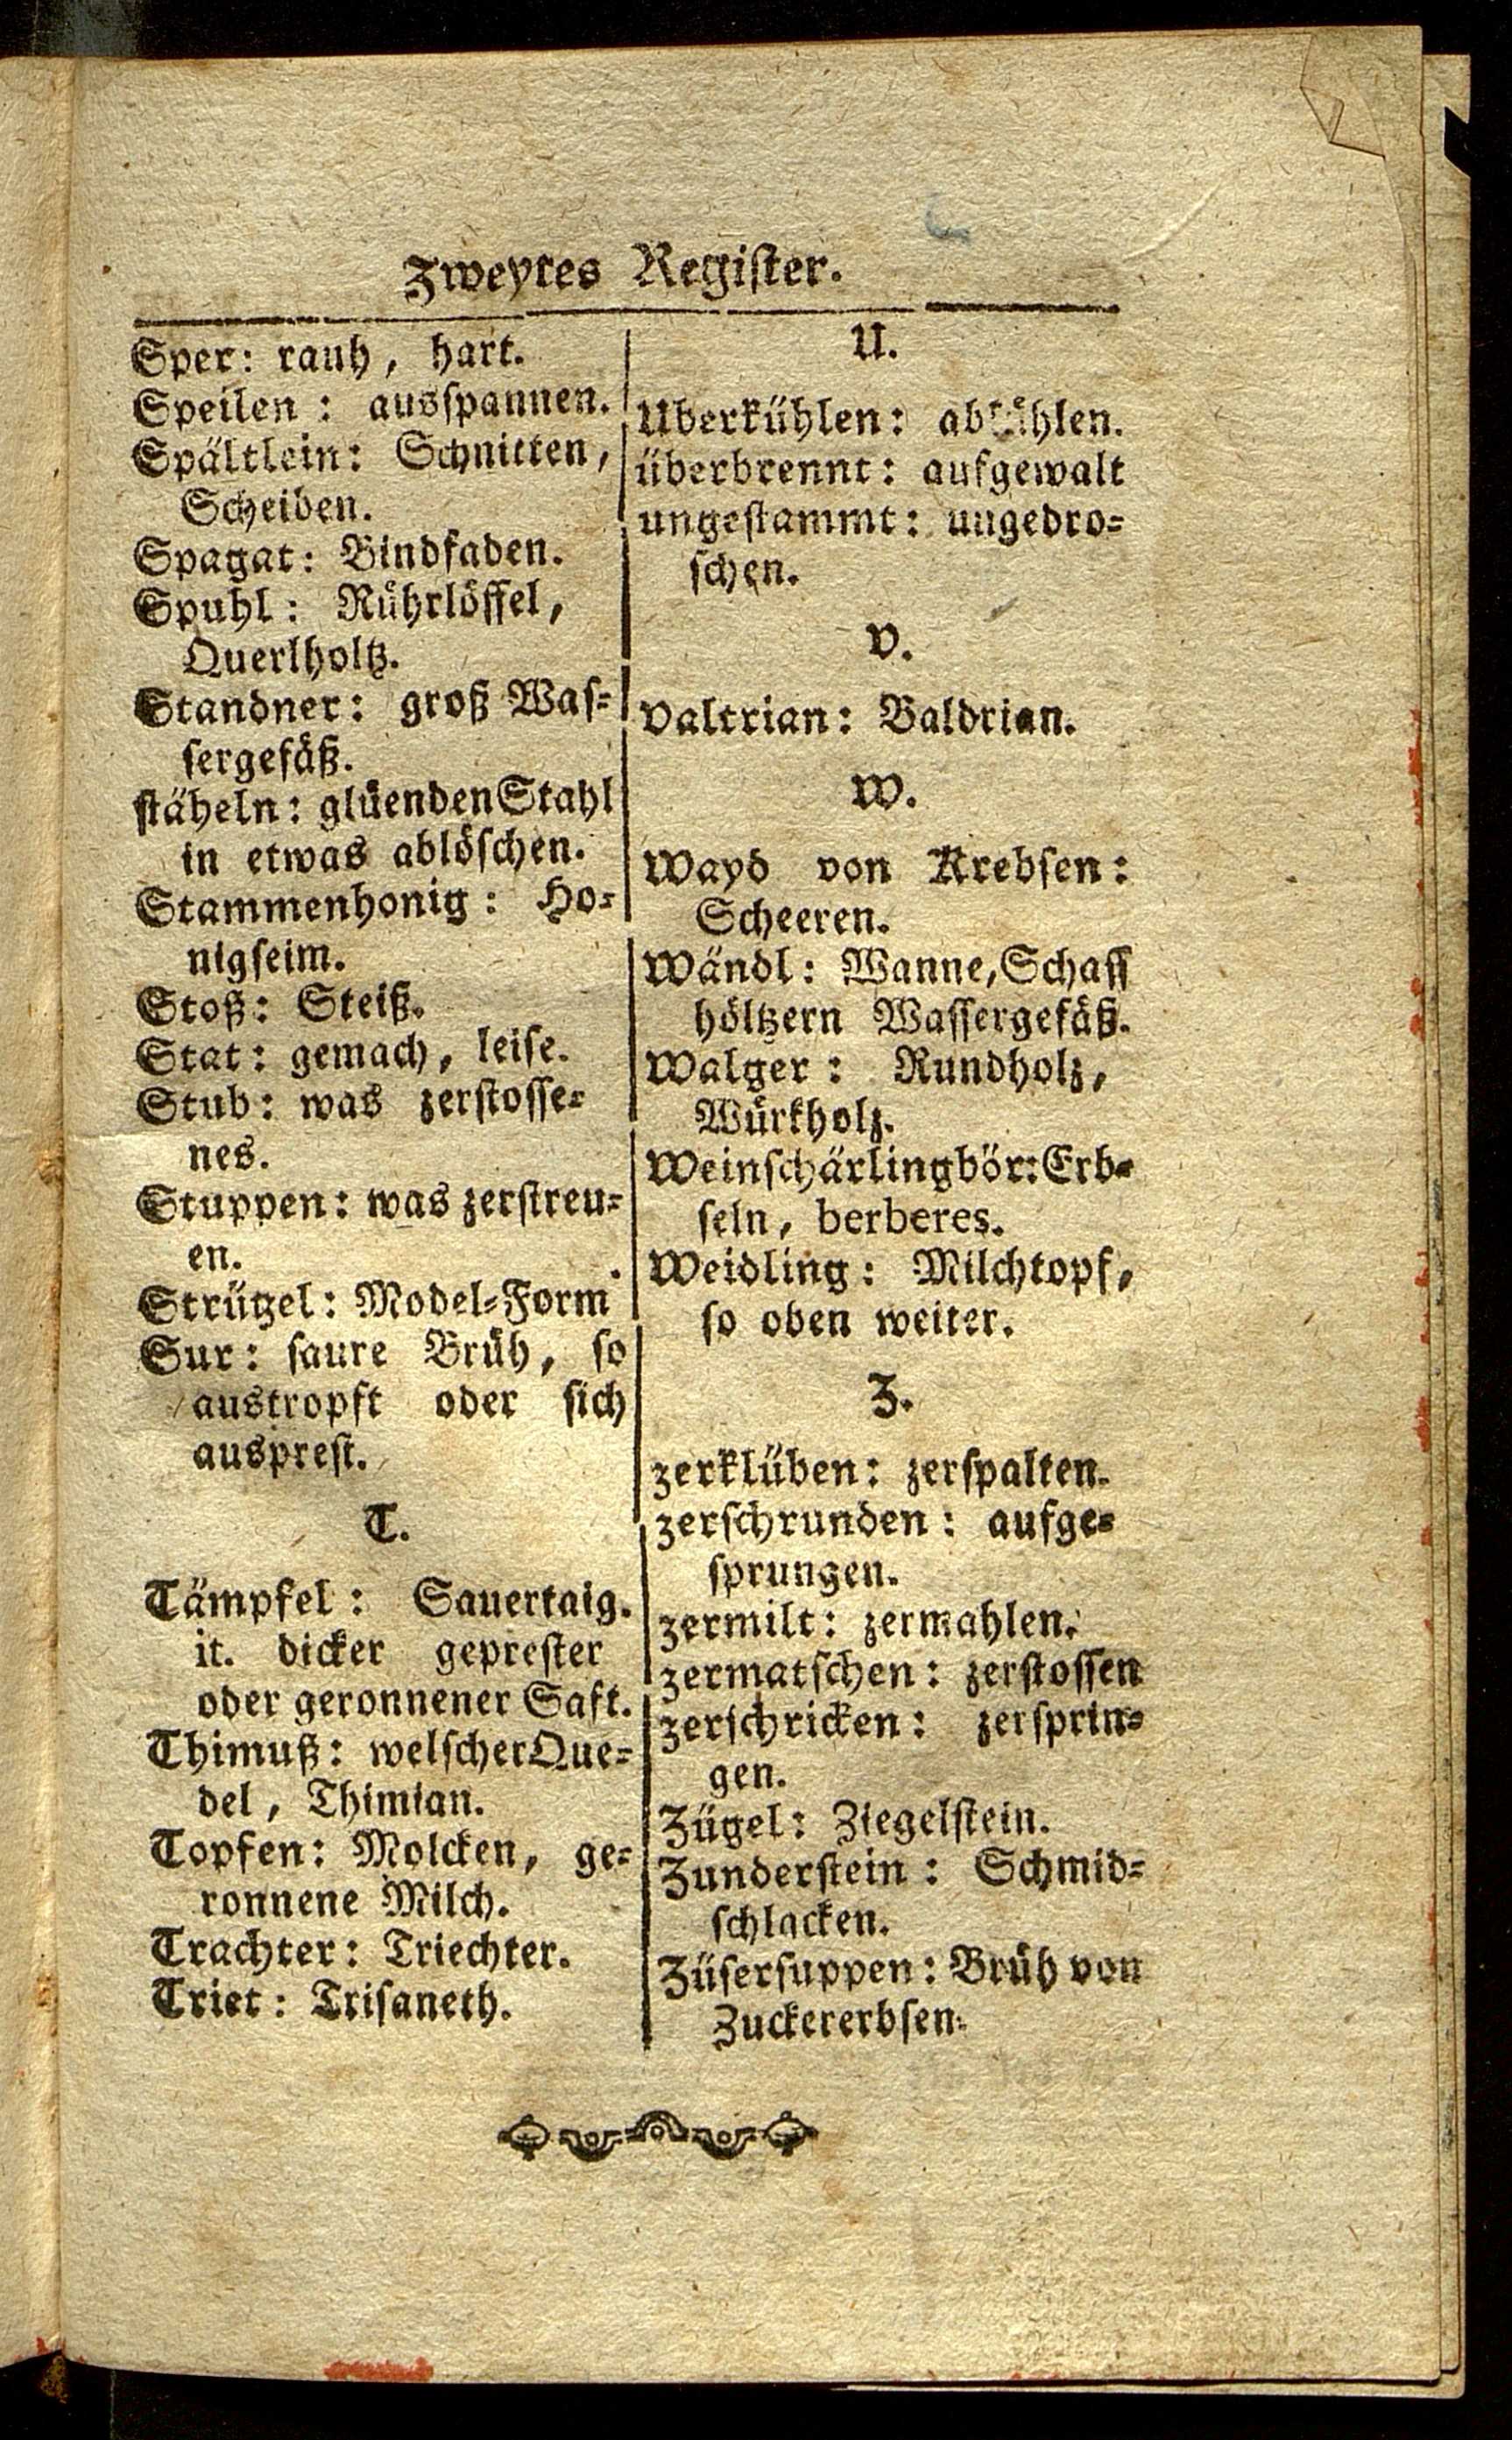 Zweytes Register.
Sper: rauh, hart.
Speilen: ausspannen.
Spältlein: Schnitten,
Scheiben.
Spagat: Bindfaden.
Spuhl: Rührlöffel,
Querlholtz.
Standner: groß Was-
sergefäß.
stäheln: glüenden Stahl
in etwas ablöschen.
Stammenhonig: Ho-
nigseim.
Stoß: Steiß.
Stat: gemach, leise.
Stub: was zerstosse-
nes.
Stuppen: was zerstreu-
en.
Strützel: Model-Form
Sur: saure Brüh, so
austropft oder sich
ausprest.
T.
Tämpfel: Sauertaig.
it. dicker geprester
oder geronnener Saft.
Thimuß: welscher Que-
del, Thimian.
Topfen: Molcken, ge-
ronnene Milch.
Trachter: Triechter.
Triet: Trisaneth.
U.
Uberkühlen: abkühlen.
überbrennt: aufgewalt
ungestammt: ungedro-
schen.
V.
Valtrian: Baldrian.
W.
Wayd von Krebsen:
Scheeren.
Wändl: Wanne, Schaff
höltzern Wassergefäß.
Walger: Rundholz,
Würkholz.
Weinschärlingbör: Erb-
seln, berberes.
Weidling: Milchtopf,
so oben weiter.
Z.
zerklüben: zerspalten.
zerschrunden: aufge-
sprungen.
zermilt: zermahlen.
zermatschen: zerstossen
zerschricken: zersprin-
gen.
Zügel: Ziegelstein.
Zunderstein: Schmid-
schlacken.
Züsersuppen: Brüh von
Zuckererbsen.